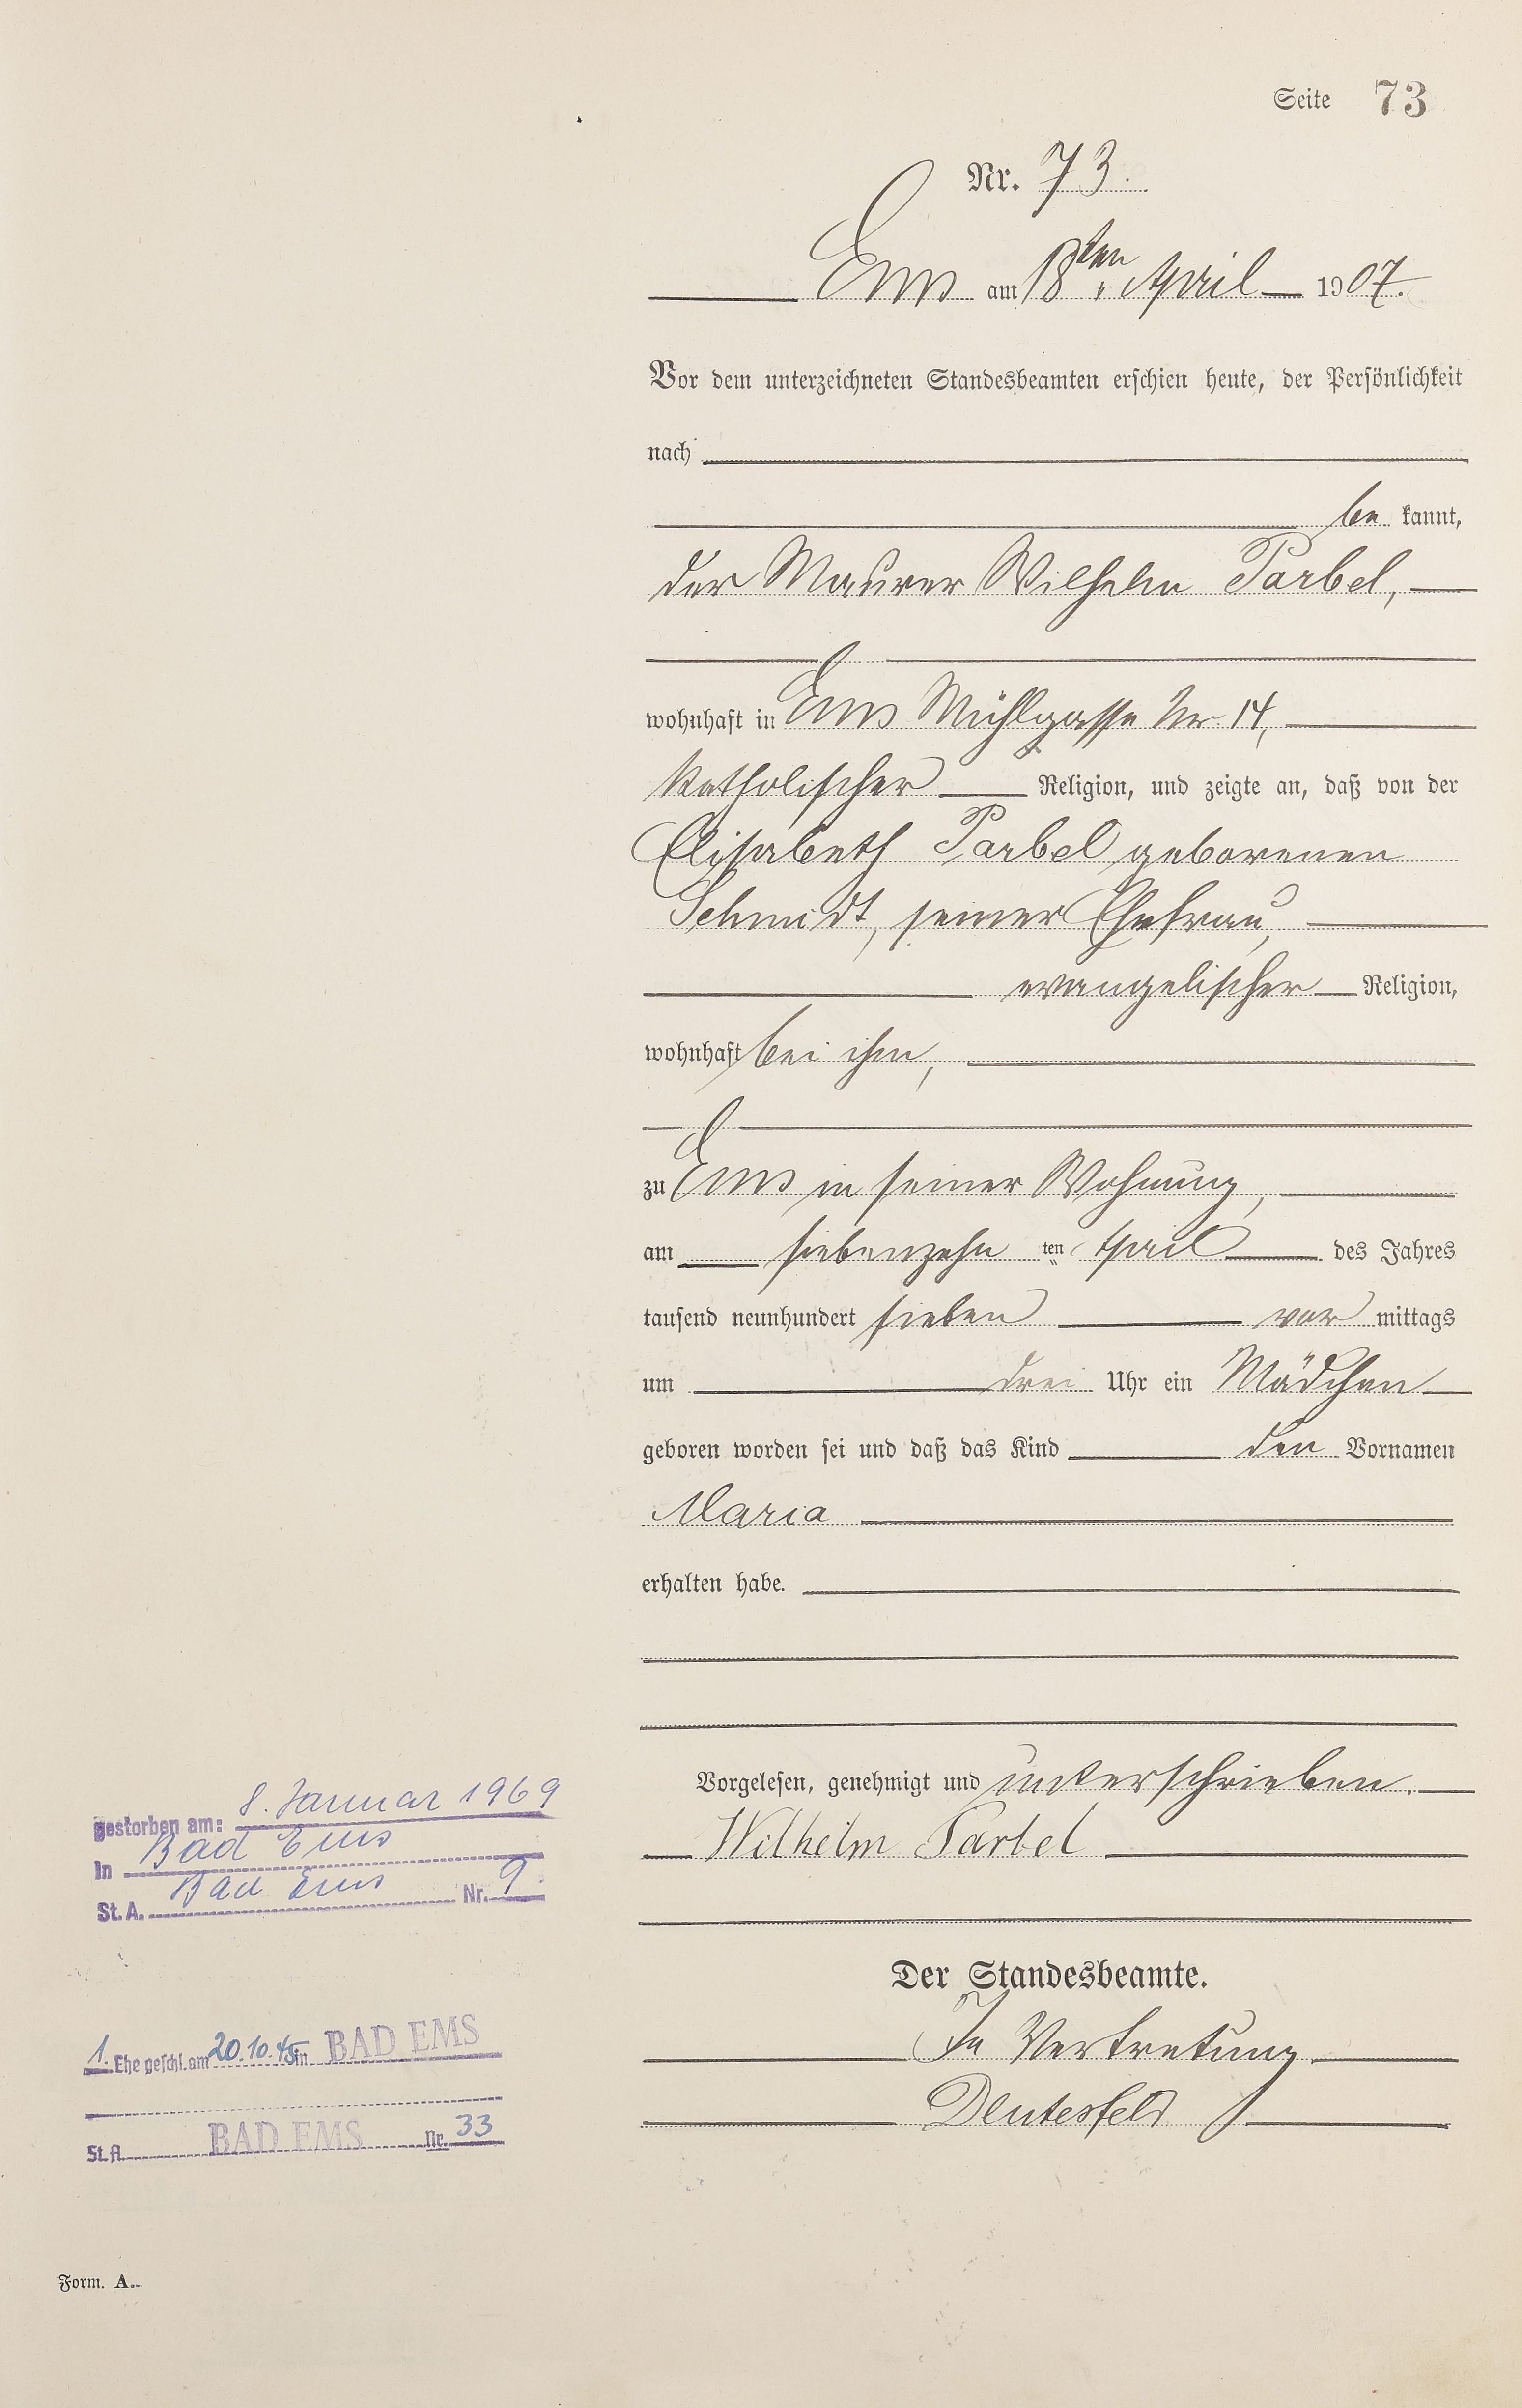 Seite 73
Nr. 73.
Ems am 18ten April 1907.
Vor dem unterzeichneten Standesbeamten erschien heute, der Persönlichkeit
nach
be kannt,
der Maurer Wilhelm Parbel,
wohnhaft in Ems Mühlgasse Nr. 14,
katholischer Religion, und zeigte an, daß von der
Elisabeth Parbel geborenen
Schmidt, seiner Ehefrau,
evangelischer Religion,
wohnhaft bei ihm,
zu Ems in seiner Wohnung,
am siebenzehn ten April des Jahres
tausend neunhundert sieben vor mittags
um drei Uhr ein Mädchen
geboren worden sei und daß das Kind den Vornamen
Maria
erhalten habe.
Vorgelesen, genehmigt und unterschrieben.
Wilhelm Parbel
Der Standesbeamte.
In Vertretung
gestorben am: 8. Januar 1969
In Bad Ems
St. A. Bad Ems Nr. 9
1. Ehe geschl. am 20.10.45 in BAD EMS
St.A. BAD EMS Nr. 33
Form. A.